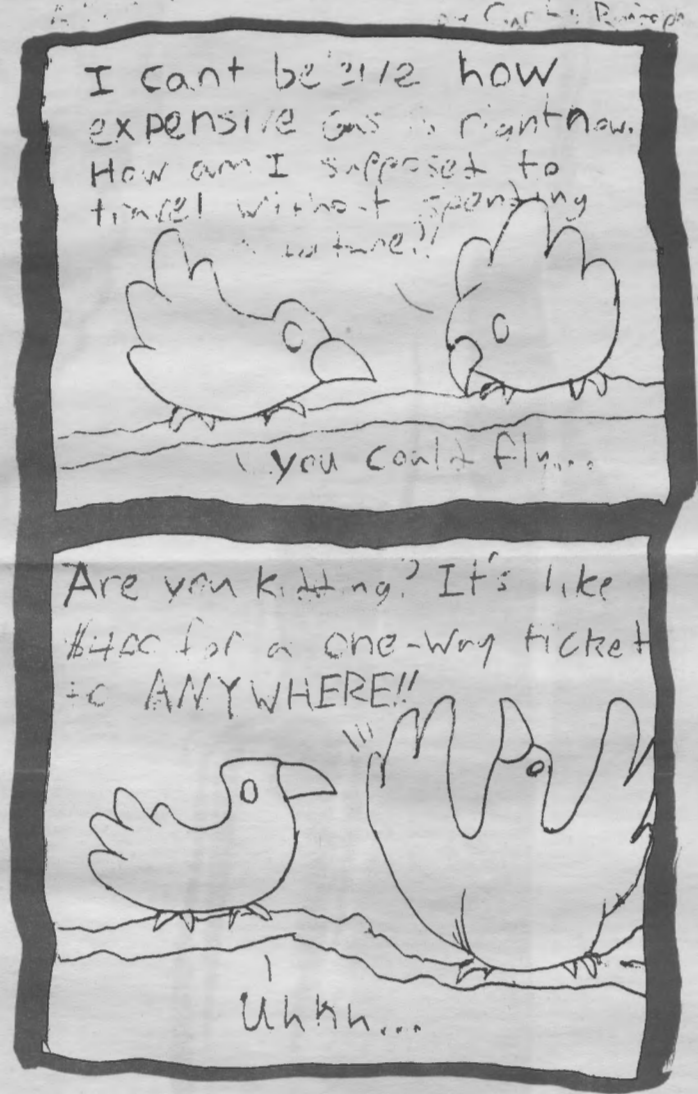 I cant be how
expensive Gas is rightnow.
How am I supposed to
travel without spending
you could fly...
Are you kidding? It's like
$400 for a one-way ticket
to ANYWHERE!!
Uhhh...